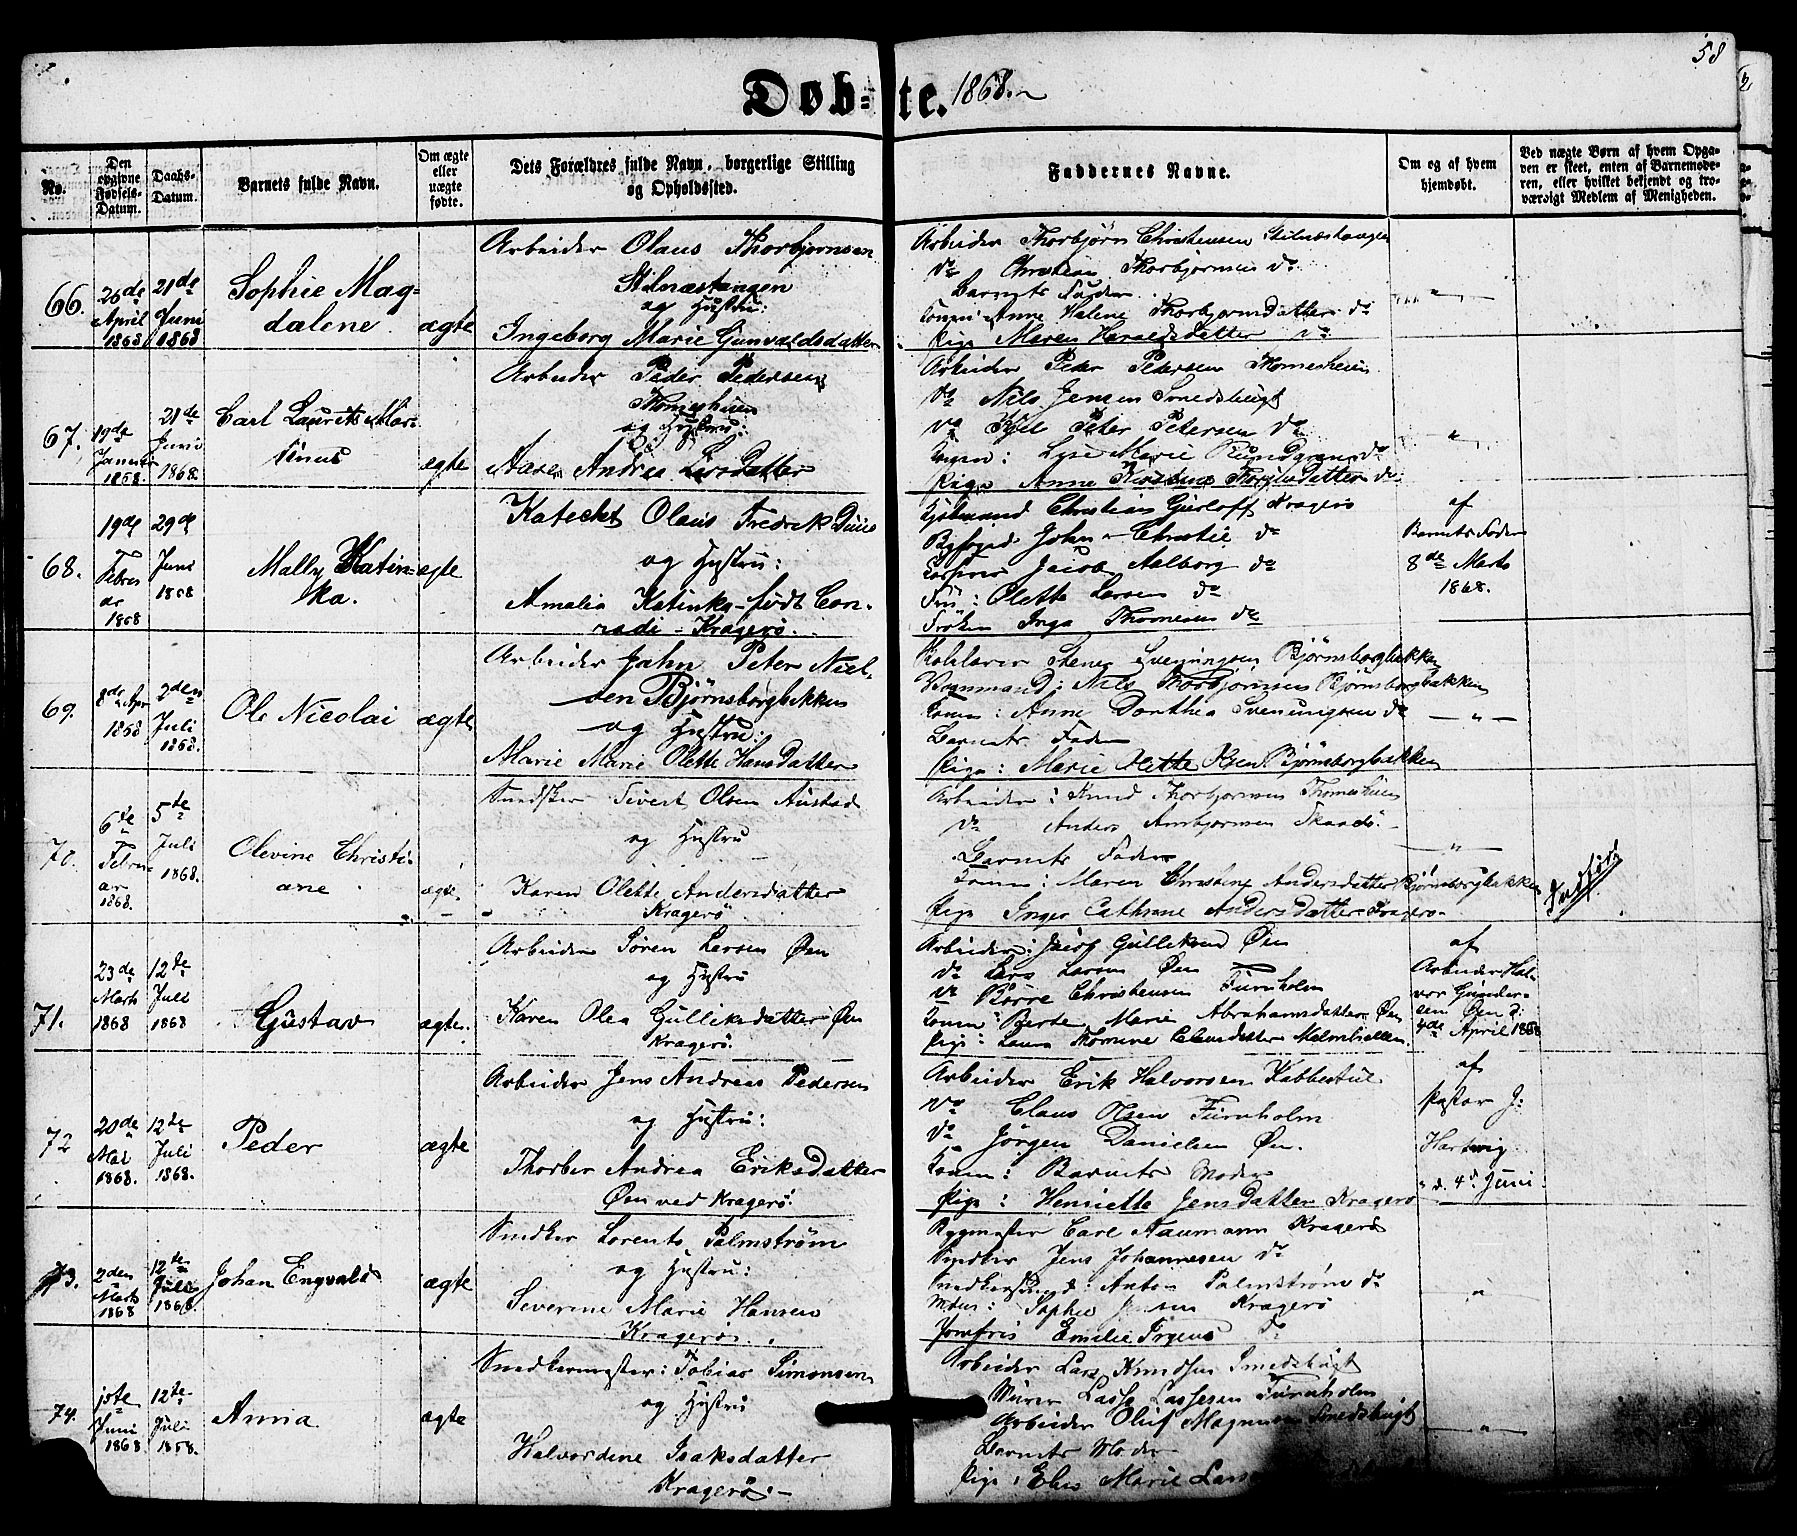 58
Døb-te. 1868.
No.
Den opgivne Fødsels-Datum.
Daabs-Datum.
Barnets fulde Navn.
Om ægte eller uægte fødte.
Dets Forældres fulde Navn, borgerlige Stilling og Opholdssted.
Faddernes Navne.
Om og af hvem hjemdøbt.
Ved uægte Børn af hvem Opgaven er skeet, enten af Barnemoderen, eller hvilket bekjendt og troværdigt Medlem af Menigheden.
66.
26de April 1868
21de Juni 1868
Sophie Mag-
dalene
ægte
Arbeider Olaus Thorbjørnsen
Stilnæstangen
og Hustru:
Ingeborg Marie Gunvaldsdatter
Arbeider Thorbjørn Christensen Stilnæstangen
do Christian Thorbjørnsen do
Barnets Fader
Konen Anne Halene Thorbjørnsdatter do
Pige Maren Haraldsdatter do
67.
19de Januar 1868.
21de Juni 1868.
Carl Laurits Mar-
tinus
ægte
Arbeider Peder Pedersen
Thomesheien
og Hustru:
Aase Andrea Larsdatter
Arbeider Peder Petersen Thomesheien
do Nils Jensen Smedsbugt
do Kjel Peter Petersen do
Konen: Lyse Marie do
Pige Anne Kirstine do
68.
19de Februar 1868
29de Juni 1868
Mally Katin-
ka.
ægte
Katechet Olaus Fredrik Duus
og Hustru:
Amalia Katinka født Con-
radi - Kragerø.
Kjøbmand Christian Gurloff Kragerø
Byfoged John Christie do
Jacob Aalborg do
Fru: Olette Larsen do
Frøken Inga Thomesen do
af
Barnets Fader
8de Marts
1868.
69.
8de Apr 1868
2den Juli 1868.
Ole Nicolai
ægte
Arbeider John Peter Niel-
sen Bjørnsborgbakken
og Hustru:
Marie Marie Olette Hansdatter
Stener Svenungsen Bjørnsborgbakken
Vognmand: Nils Thorbjørnsen Bjørnsborgbakken
Konen: Anne Dorthea Svenungsen do
Barnets Fader
Pige: Marie Olette Olsen Bjørnsborgbakken
70.
6te Februar 1868.
5te Juli 1868.
Olevine Christi-
ane
ægte.
Sivert Olsen Austad
og Hustru
Karen Olette Andersdatter
Kragerø
Arbeider: Knud Thorbjørnsen Thomesheien
do Anders Ambjørnsen Skaadø.
Barnets Fader
Konen: Maren Christine Andersdatter Bjørnsborgbakken
Pige Inger Cathrine Andersdatter Kragerø.
71.
23de Marts 1868
12te Juli 1868
Gustav
ægte.
Arbeider Søren Larsen Øen
og Hustru
Karen Olea Gulliksdatter Øen
Kragerø.
Arbeider: Jacob Gulliksen Øen
do Lars Larsen Øen
do Børre Christensen Furuholm
Konen: Berte Marie Abrahamsdatter Øen
Pige: Laura Thomine Clausdatter Malmhellen
af
Arbeider Hal-
vor Gunder-
sen Øen d:
4de April 1868
72
20de Mai 1868.
12te Juli 1868.
Peder
ægte
Arbeider Jens Andreas Pedersen
og Hustru:
Thorber Andrea Eriksdatter
Øen ved Kragerø.
Arbeider Erik Halvorsen Kabbestul
do Claus Olsen Furuholm
do Jørgen Danielsen Øen.
Konen: Barnets Moder
Pige: Henriette Jensdatter Kragerø
af
Pastor J:
Hartwig
d. 4d Juni
73.
2den Marts 1868
12te Juli 1868.
Johan Engvald
ægte
Snedker Lorents Palmstrøm
og Hustru:
Severine Marie Hansen
Kragerø.
Bygmester Carl Naumann Kragerø
Snedker Jens Johannesen do
Snedkersvend: Anton Palmstrøm do
Mdme: Sophie Jensen Kragerø
Jomfru Emilie Irgens do
74.
10te Juni 1868
12te Juli 1868.
Anna
ægte
Snedkermester: Tobias Simonsen
og Hustru
Halvordine Isaksdatter
Kragerø.
Arbeider Lars Knudsen Smedsbugt
Murer Lasse Lassesen Furuholm
Arbeider Oluf Magnusen Smedsbugt
Barnets Moder
Pige: Elen Marie